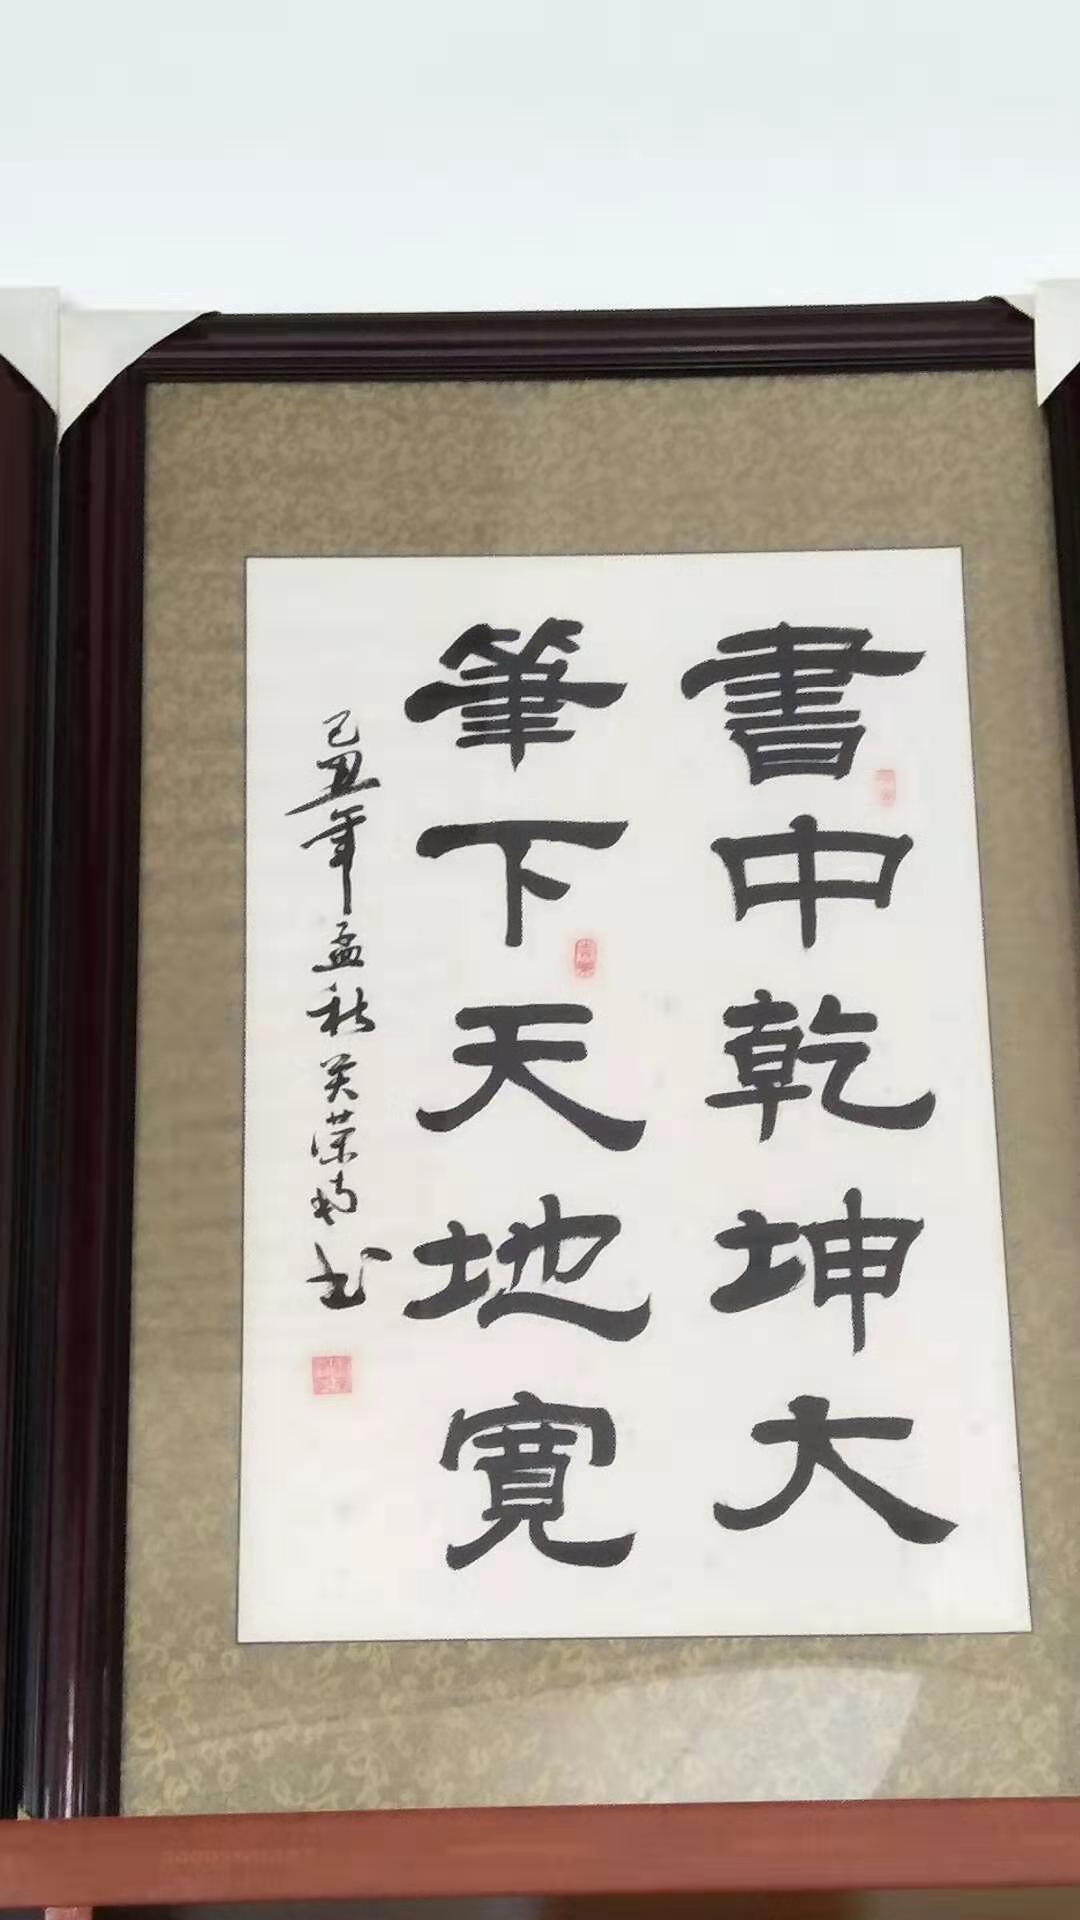 書中乾坤大
筆下天地寬
己丑年孟秋吴荣
书